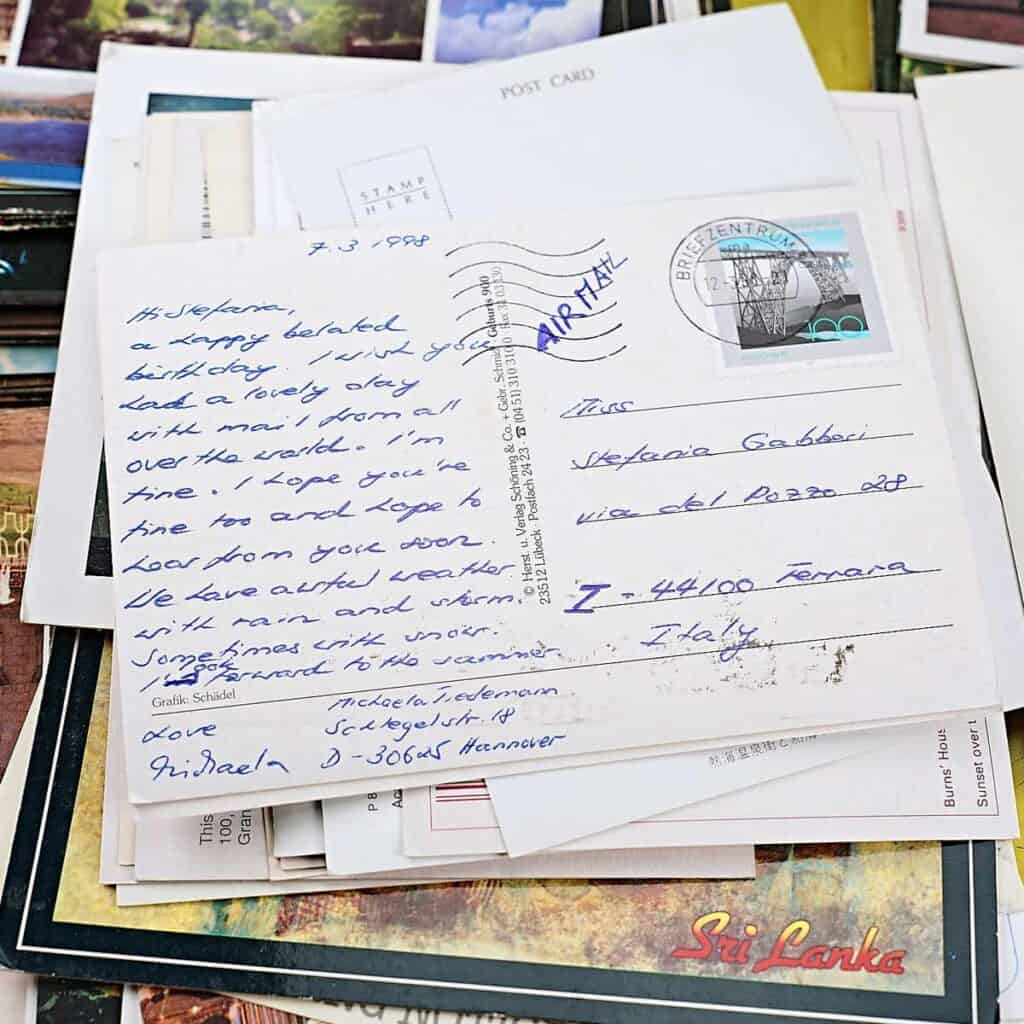 POST CARD
STAMP
HERE
7.3.1998
Hi Stefania,
a happy belated
birthday. I wish you
had a lovely day
with mail from all
over the world. I'm
fine. I hope you're
fine too and hope to
hear from you soon.
We have awful weather
with rain and storm.
Sometimes with snow.
I look forward to the summer
Grafik: Schädel
Love
Michaela
Michaela Tiedemann
Schlegelstr. 18
D-30625 Hannover
© Herst. u. Verlag Schöning & Co. + Gebr. Schmidt
23512 Lübeck · Postfach 24 23 · ☎ (04 51) 310 310
AIRMAIL
BRIEFZENTRUM
100
Miss
Stefania Gabberi
via del Pozzo 28
I - 44100 Ferrara
Italy
This
100,
Gran
Burns' Hous
Sunset over L
Sri Lanka